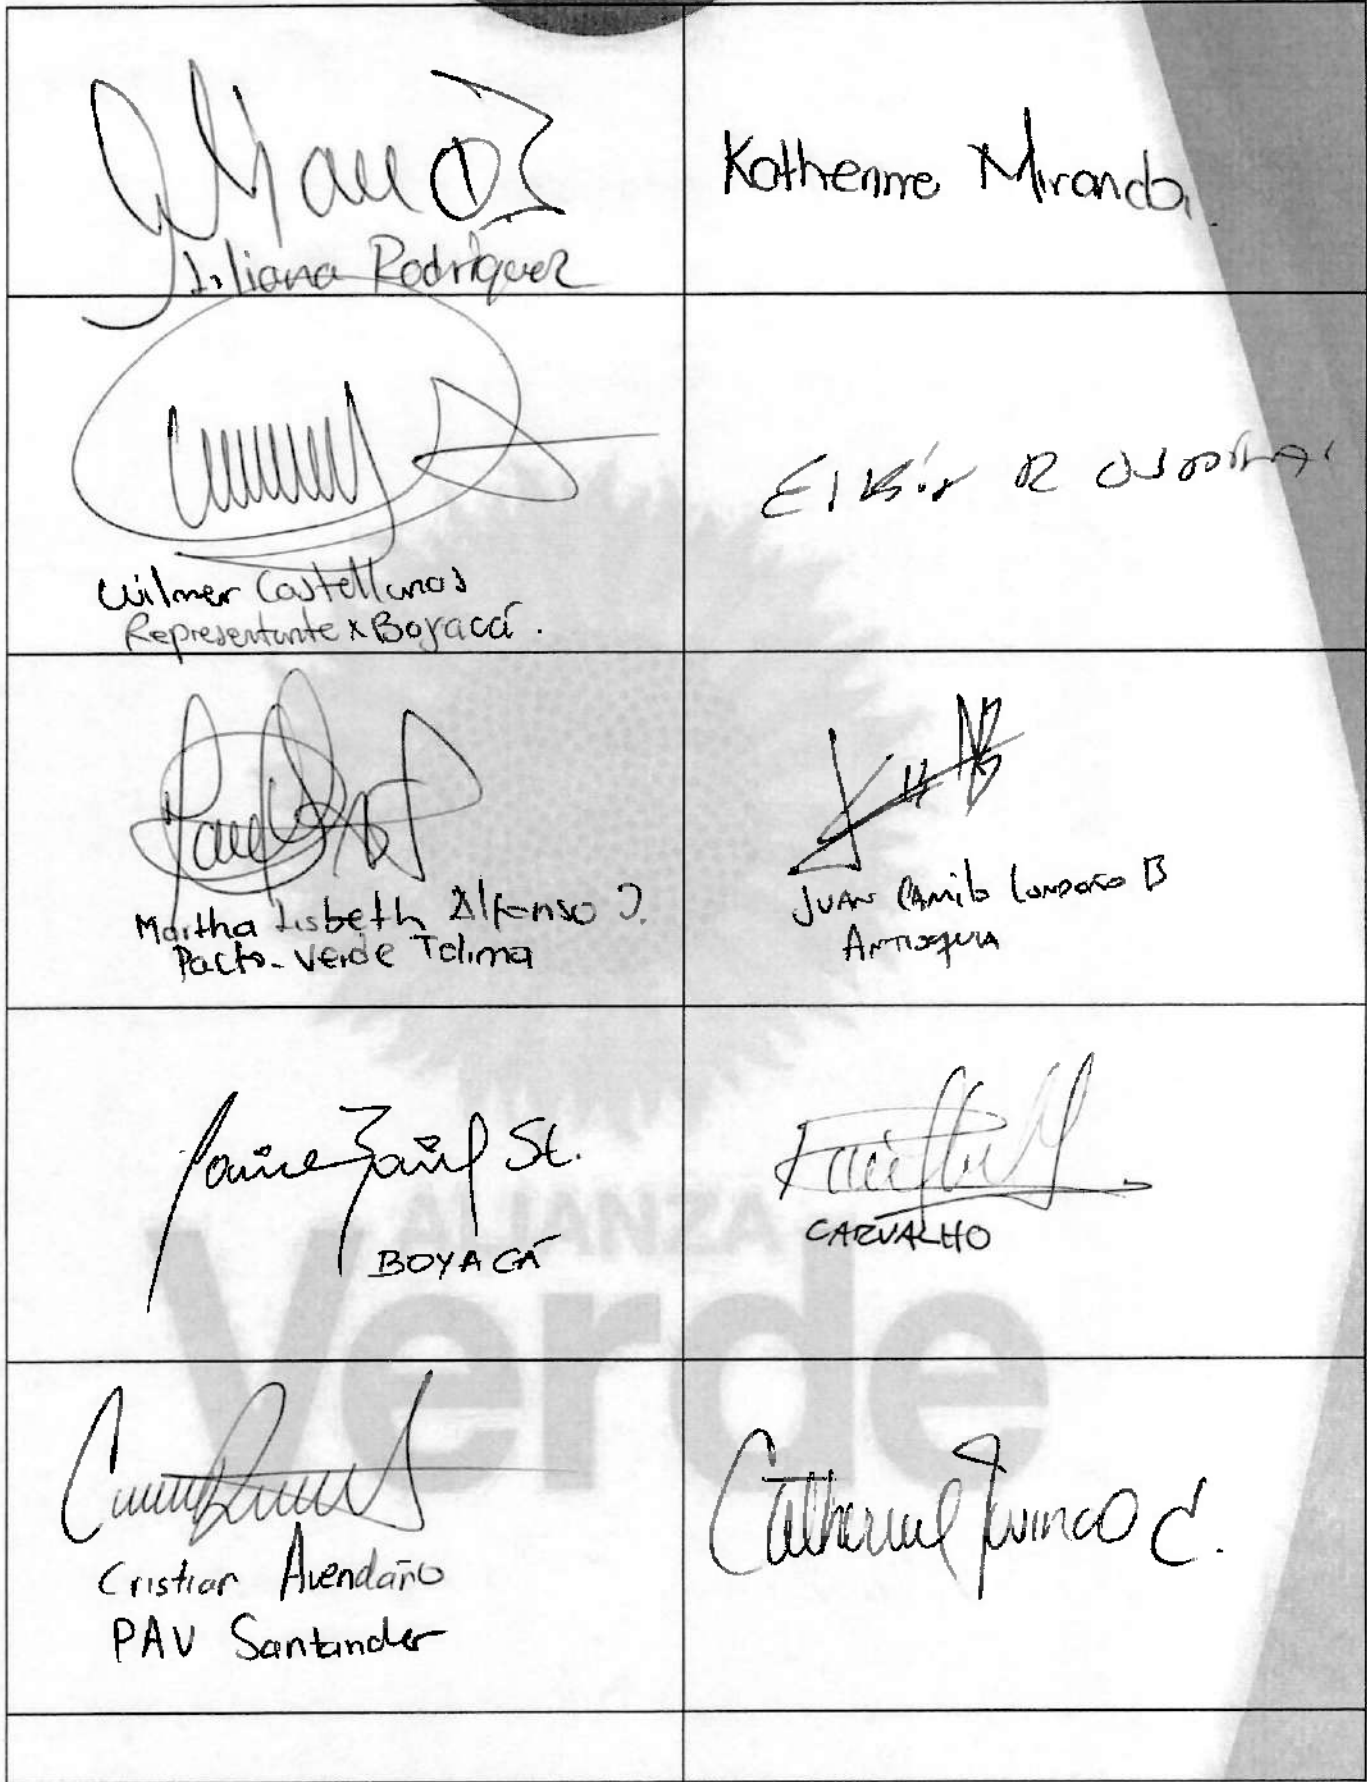 Liliana Rodríguez
Katherine Miranda
Wilmer Castellanos
Representante x Boyacá.
Elkin R
Martha Lisbeth Alfonso J.
Pacto-Verde Tolima
JUAN CAMilo LONDOÑO B
ANTIOQUIA
Jaime Raúl Sc.
BOYACÁ
CARVALHO
ALIANZA
Verde
Cristian Avendaño
PAV Santander
Catherine Juvinao C.